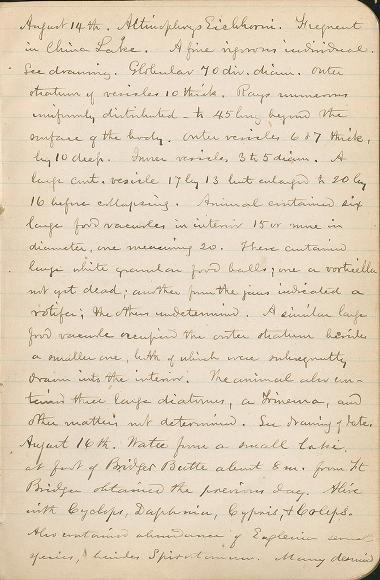 August 14th. Actinophrys Eichhorni. Frequent
in China Lake. A fine vigorous individual.
See drawing. Globular 70 div. diam. Outer
stratum of vesicles 10 thick. Rays numerous
uniformly distributed – to 45 long beyond the
surface of the body. Outer vesicles 6 & 7 thick,
by 10 deep. Inner vesicles 3 to 5 diam. A
large cont. vesicle 17 by 13 but enlarged to 20 by
16 before collapsing. Animal contained six
large food vacuoles in interior 15 or more in
diameter, one measuring 20. These contained
large white granular food balls; one a vorticella
not yet dead; another from the jaws indicated a
rotifer; the others undetermined. A similar large
food vacuole occupied the outer stratum besides
a smaller one, both of which were subsequently
drawn into the interior. The animal also con-
tained three large diatomes, a Trinema, and
other matters not determined. See drawing of date.
August 16th. Water from a small lake,
at foot of Bridger Butte about 8 m. from Ft
Bridger obtained the previous day. Alive
with Cyclops, Daphnia, Cypris, & Coleps.
Also contained abundance of Euglenia several
species, & besides Spirostomum. Many